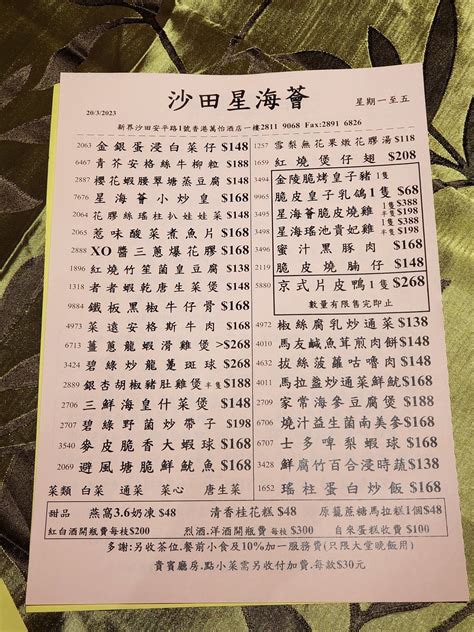 沙田星海薈
20/3/2023
星期一至五
新界沙田安平路1號香港萬怡酒店一樓2811 9068 Fax:2891 6826
2063 金銀蛋浸白菜仔 $148
6467 青芥安格絲牛柳粒 $188
2887 櫻花蝦腰翠塘蒸豆腐 $148
7676 星海薈小炒皇 $168
2064 花膠絲瑤柱扒娃娃菜 $148
2065 惹味酸菜煮魚片 $168
2888 XO醬三蔥爆花膠 $168
1896 紅燒竹笙菌皇豆腐 $138
1318 者者蝦乾唐生菜煲 $148
9884 鐵板黑椒牛仔骨 $168
4973 菜遠安格斯牛肉 $168
6713 薑蔥龍蝦滑雞煲 >$268
3424 碧綠炒龍躉斑球 $268
2889 銀杏胡椒豬肚雞煲 半隻 $188
2706 三鮮海皇什菜煲 $148
2707 碧綠野菌炒帶子 $198
3540 麥皮脆香大蝦球 $168
2069 避風塘脆鮮魷魚 $168
1257 雪梨無花果燉花膠湯 $118
1659 紅燒煲仔翅 $208
3494 金陵脆烤皇子豬 1隻
9895 脆皮皇子乳鴿 1隻 $68
3495 星海薈脆皮燒雞 1隻 $388 半隻 $198
3498 星海瑤池貴妃雞 1隻 $388 半隻 $198
3496 蜜汁黑豚肉 $168
2119 脆皮燒腩仔 $148
5880 京式片皮鴨 1隻 $268
數量有限售完即止
4972 椒絲腐乳炒通菜 $138
4010 馬友鹹魚茸煎肉餅 $148
4632 拔絲菠蘿咕嚕肉 $148
4011 馬拉盞炒通菜鮮魷 $168
2709 家常海參豆腐煲 $188
6706 燒汁益生菌南美參 $168
6707 士多啤梨蝦球 $168
3428 鮮腐竹百合浸時蔬 $138
1652 瑤柱蛋白炒飯 $168
菜類 白菜 通菜 菜心 唐生菜
甜品 燕窩3.6奶凍 $48 清香桂花糕 $48 原籠蔗糖馬拉糕1個$48
紅白酒開瓶費每枝$200 烈酒.洋酒開瓶費 每枝 $300 自來蛋糕收費 $100
多謝:另收茶位.餐前小食及10%加一服務費(只限大堂晚飯用)
貴賓廳房.點小菜需另收付加費.每款$30元